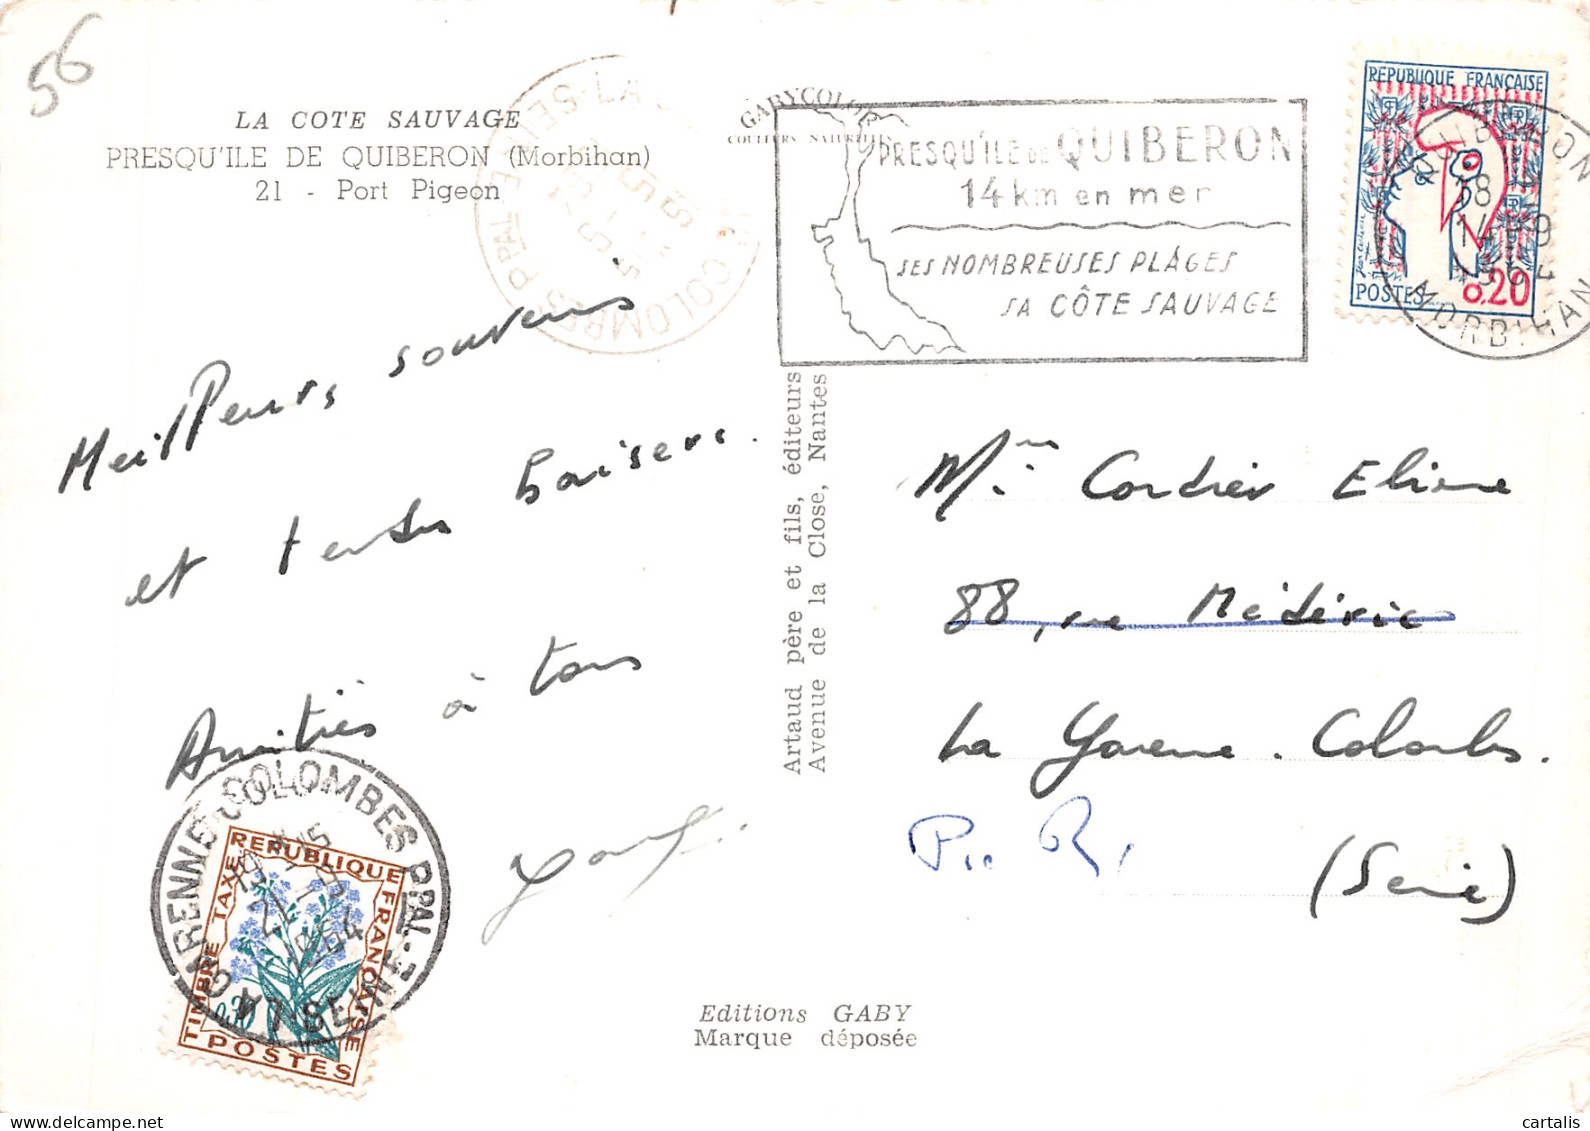 56
LA COTE SAUVAGE
PRESQU'ILE DE QUIBERON (Morbihan)
21 - Port Pigeon
GABYCOLOR
COULEURS NATURELLES
PRESQU'ILE DE QUIBERON
14 km en mer
SES NOMBREUSES PLAGES
SA CÔTE SAUVAGE
REPUBLIQUE FRANÇAISE
POSTES 0.20
QUIBERON
MORBIHAN
Meilleurs souvenirs
et tendres baisers.
Amitiés à tous
Artaud père et fils, éditeurs
Avenue de la Close, Nantes
Cordier Eliane
88, rue Médéric
La Garenne. Colombes.
(Seine)
GARENNE-COLOMBES PPAL
LA
1964
REPUBLIQUE FRANÇAISE
TIMBRE TAXE
0,30
POSTES
Editions GABY
Marque déposée
cartalis